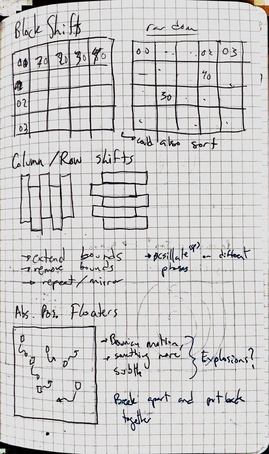 Block Shifts
random
0.0 .. 0.2 0.3
→ could also sort
Column / Row shifts
→ extend bounds
→ remove bounds
→ repeat / mirror
→ oscillate (?) - different phases
Abs. Pos. Floaters
→ Bouncy motion,
→ something more subtle
Explosions?
Break apart and put back together